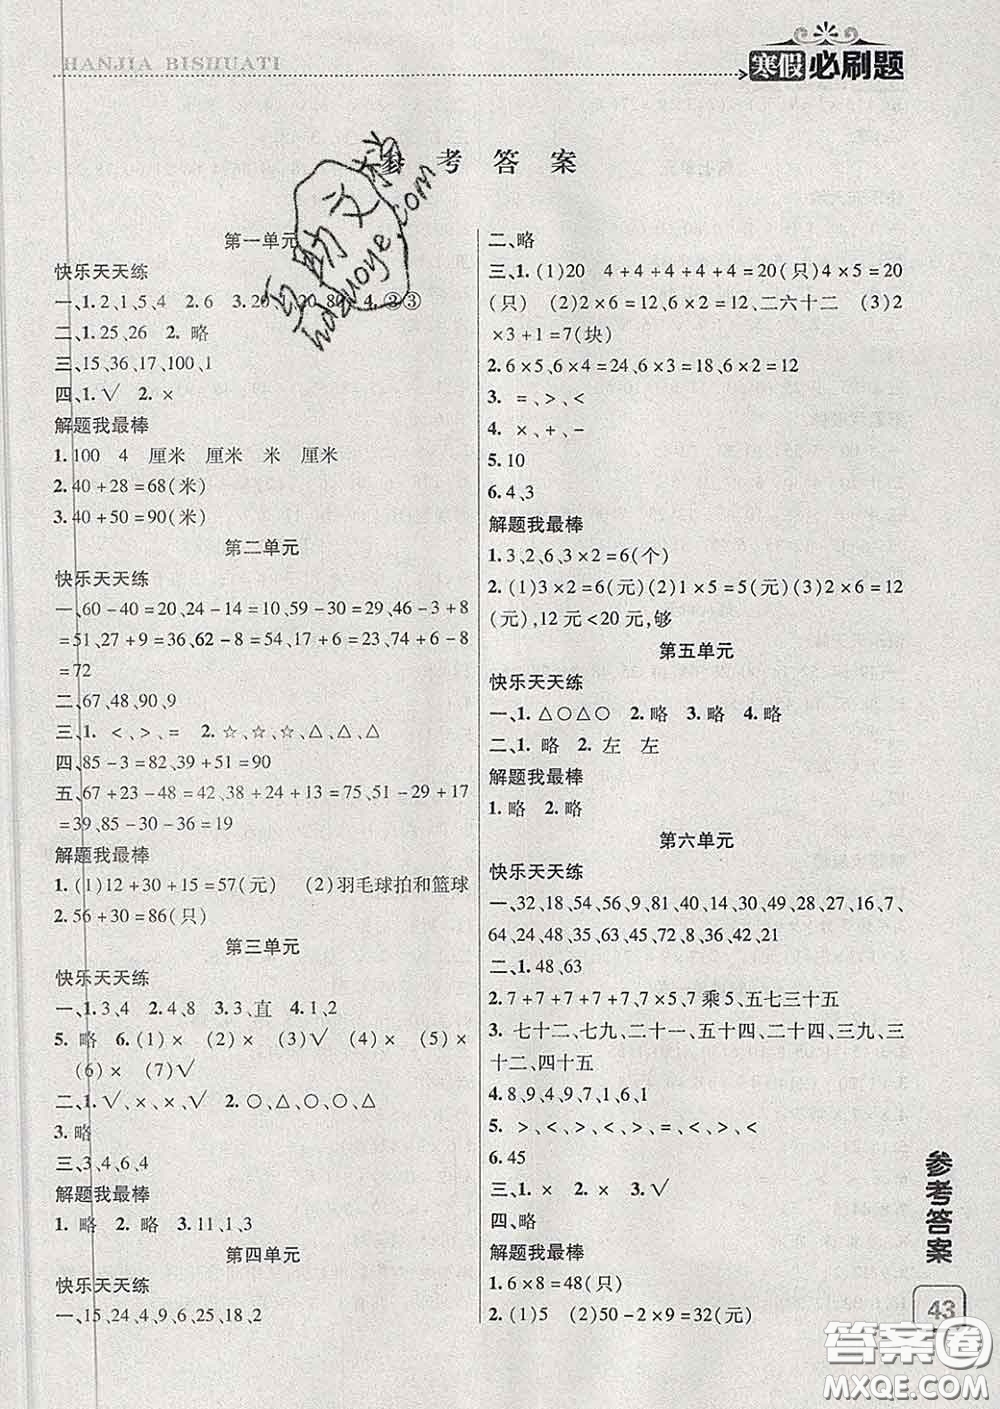 HANJIA BISHUATI
寒假必刷题
参 考 答 案
第一单元
快乐天天练
一、1.2、1、5、4 2.6
二、1.25、26 2. 略
三、15、36、17、100、1
四、1.√ 2. ×
解题我最棒
1. 100 4 厘米 厘米 米 厘米
2. 40 + 28 = 68(米)
3. 40 + 50 = 90(米)
第二单元
快乐天天练
一、60 - 40 = 20、24 - 14 = 10、59 - 30 = 29、46 - 3 + 8
= 51、27 + 9 = 36、62 - 8 = 54、17 + 6 = 23、74 + 6 - 8
= 72
二、67、48、90、9
三、1. <、>、= 2. ☆、☆、☆、△、△、△
四、85 - 3 = 82、39 + 51 = 90
五、67 + 23 - 48 = 42、38 + 24 + 13 = 75、51 - 29 + 17
= 39、85 - 30 - 36 = 19
解题我最棒
1. (1)12 + 30 + 15 = 57(元) (2)羽毛球拍和篮球
2. 56 + 30 = 86(只)
第三单元
快乐天天练
一、1.3、4 2.4、8 3.3、直 4.1、2
5. 略 6. (1) × (2) × (3)√ (4) × (5) ×
(6) × (7)√
二、1.√、×、×、√ 2.○、△、○、△
3. 略
三、3、4、6、4
解题我最棒
1. 略 2. 略 3. 11、1、3
第四单元
快乐天天练
一、15、24、4、9、6、25、18、2
二、略
三、1. (1)20 4 + 4 + 4 + 4 + 4 = 20(只)4 × 5 = 20
(只) (2)2 × 6 = 12、6 × 2 = 12、二六十二 (3)2
× 3 + 1 = 7(块)
2. 6 × 5、6 × 4 = 24、6 × 3 = 18、6 × 2 = 12
3. =、>、<
4. ×、+、-
5. 10
6. 4、3
解题我最棒
1. 3、2、6、3 × 2 = 6(个)
2. (1)3 × 2 = 6(元)(2)1 × 5 = 5(元)(3)2 × 6 = 12
(元),12元 < 20元,够
第五单元
快乐天天练
一、1.△○△○ 2. 略 3. 略 4. 略
二、1. 略 2. 左 左
解题我最棒
1. 略 2. 略
第六单元
快乐天天练
一、32、18、54、56、9、81、40、14、30、49、28、27、16、7、
64、24、48、35、63、45、72、8、42、21
二、1.48、63
2. 7 + 7 + 7 + 7 + 7、7 × 5、7 乘 5、五七三十五
3. 七十二、七九、二十一、五十四、二十四、三九、三
十二、四十五
4. 8、9、4、9、7、1、6、1
5. >、<、<、>、<、>、>、<
6. 45
三、1. × 2. × 3.√
四、略
解题我最棒
1. 6 × 8 = 48(只)
2. (1)5 (2)50 - 2 × 9 = 32(元)
参考答案
43
互助文档
hdzuoye.com
答案圈
MXQE.COM